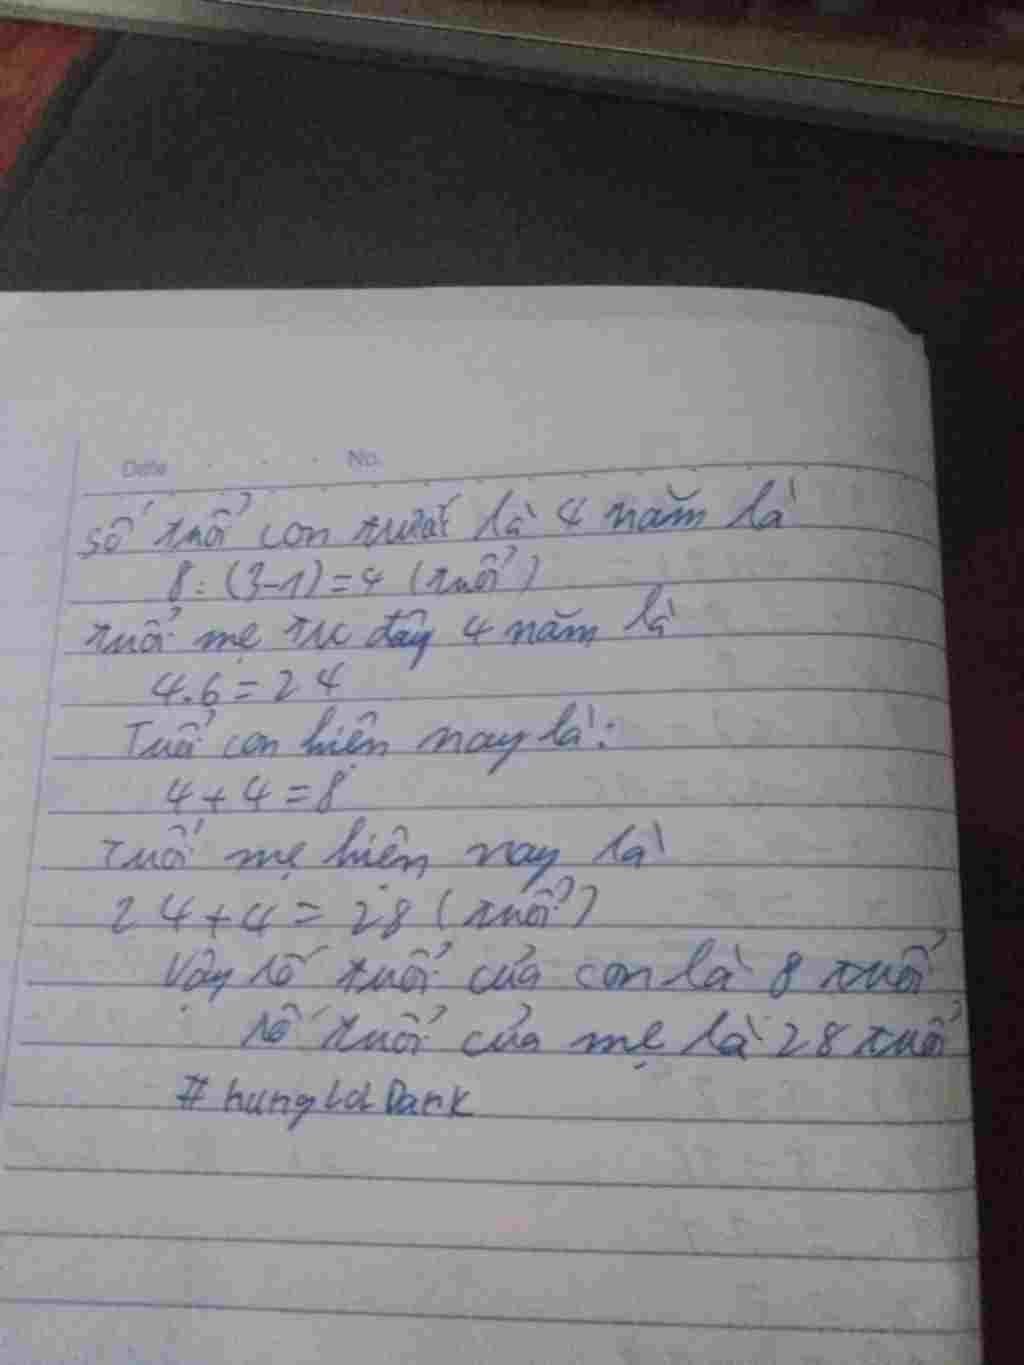 Date No.
số tuổi con trước là 4 năm là
8: (3-1)=4 (tuổi)
tuổi mẹ tư đây 4 năm là
4.6=24
Tuổi con hiện nay là:
4+4=8
tuổi mẹ hiện nay là
24+4=28 (tuổi)
Vậy số tuổi của con là 8 tuổi
số tuổi của mẹ là 28 tuổi